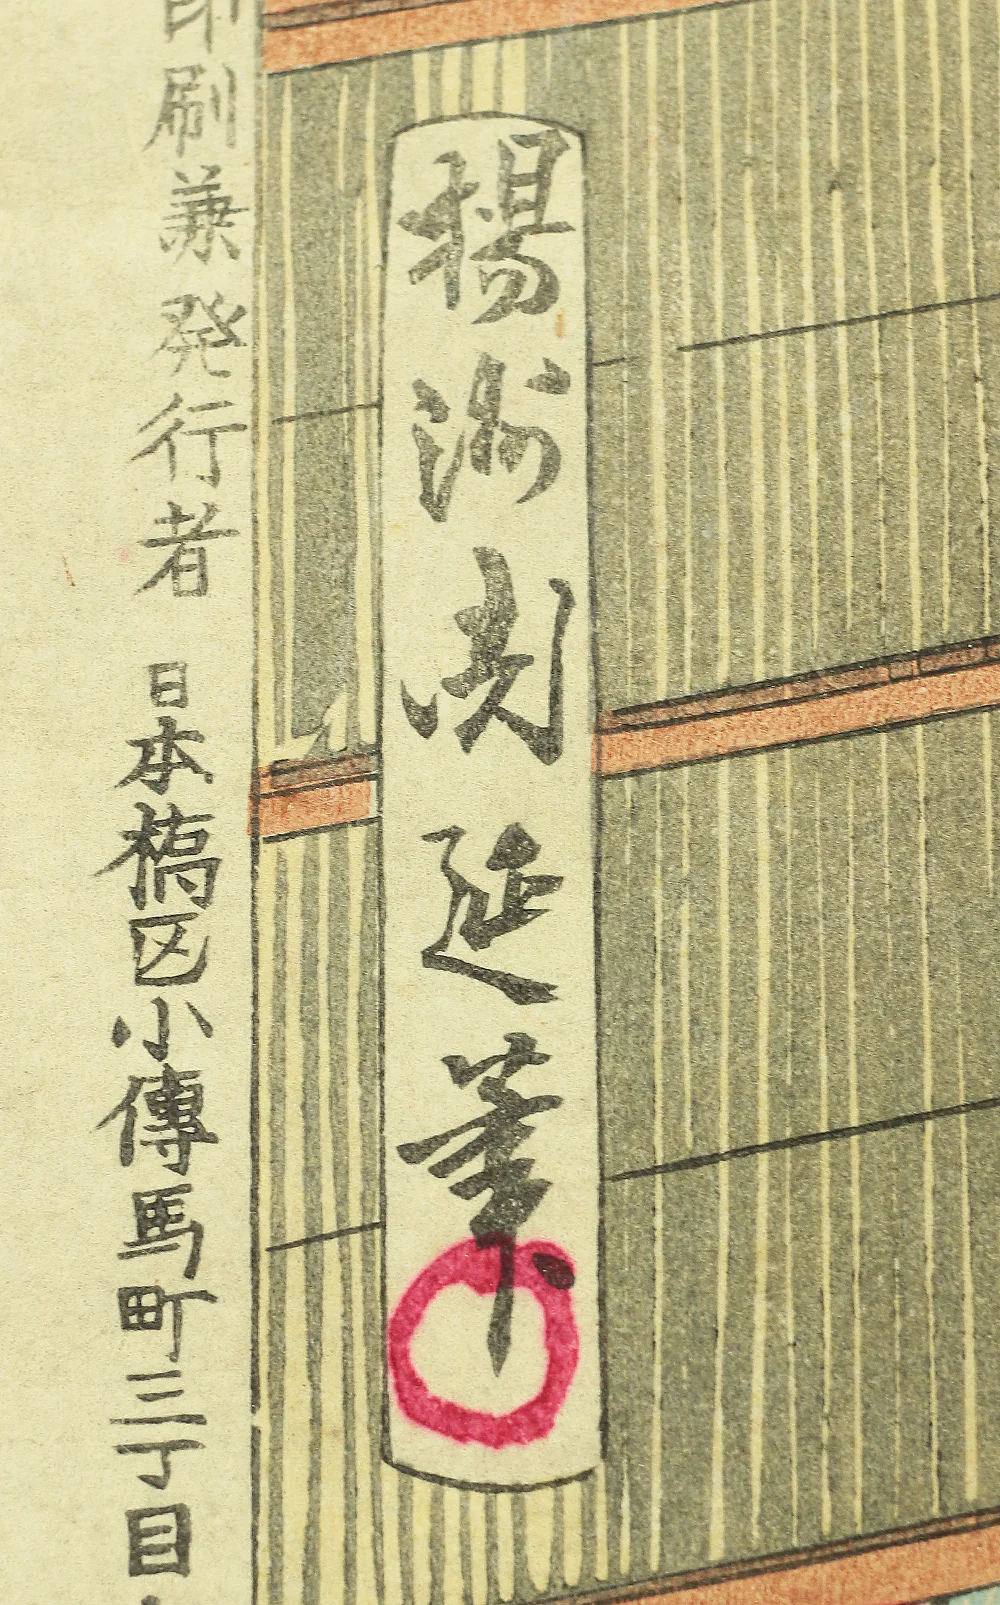 楊洲周延筆
印刷兼発行者 日本橋区小傳馬町三丁目